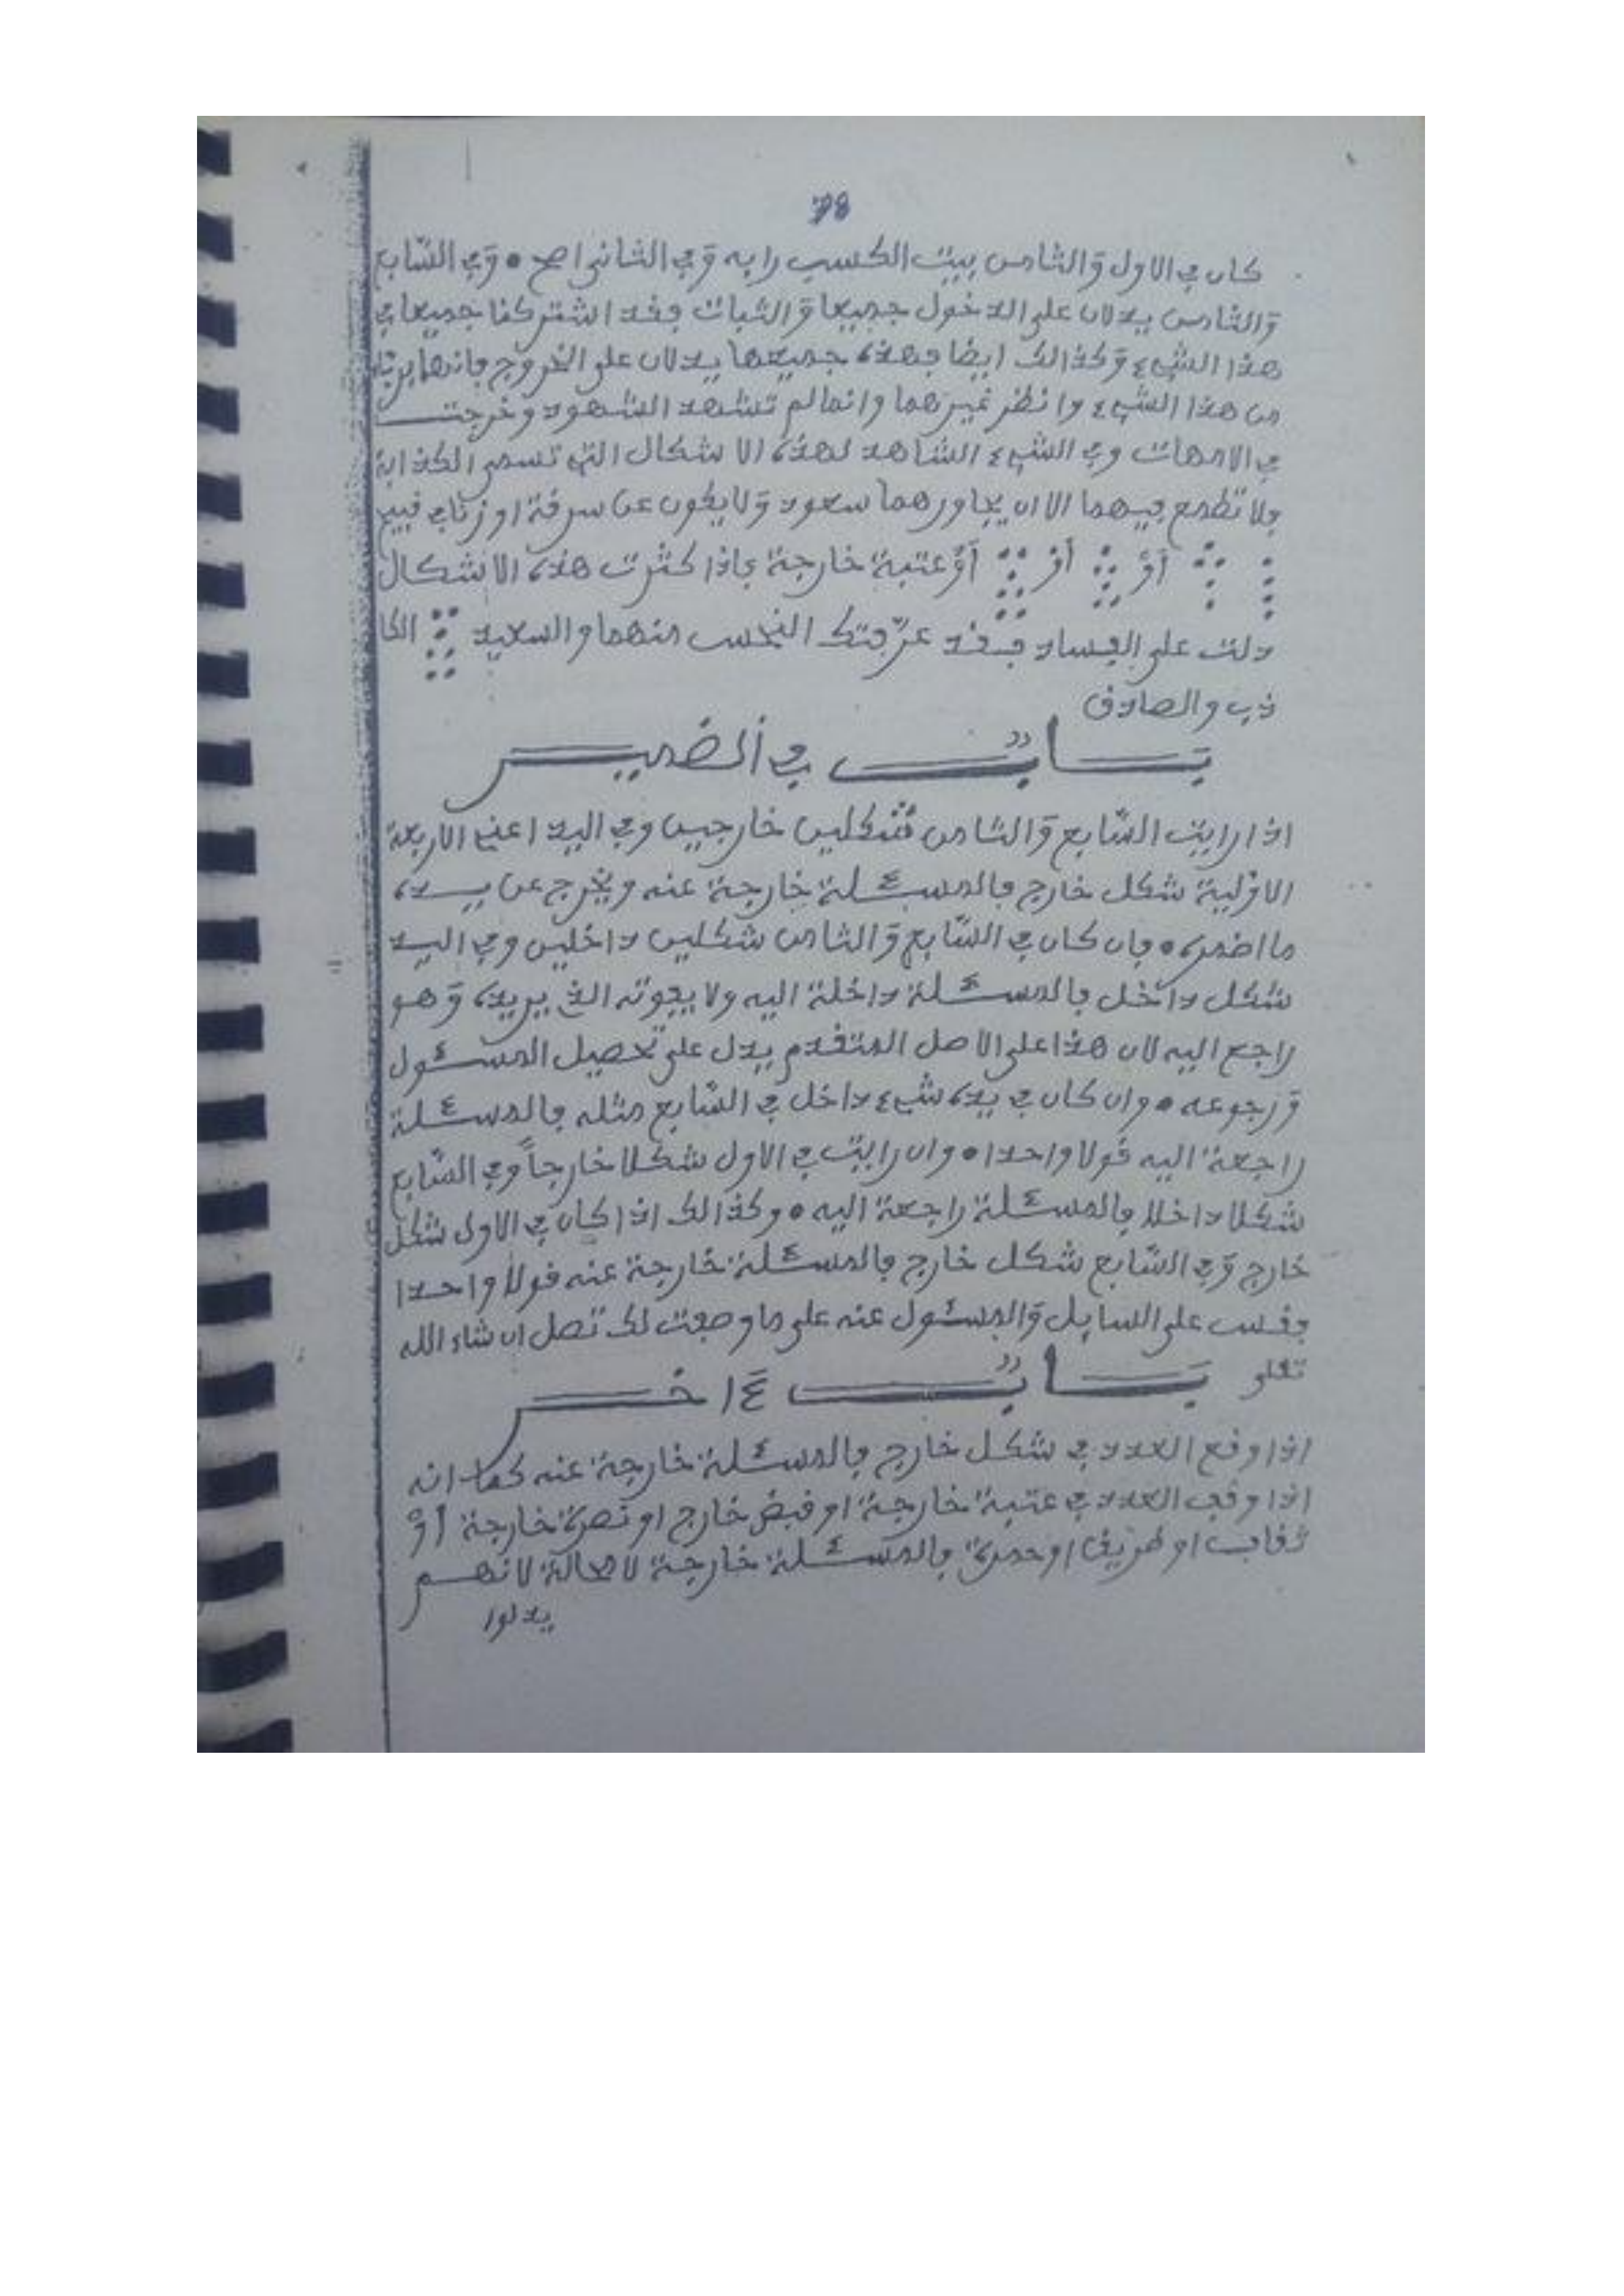 78
كان في الاول وَالثامن بيت الكسب رابه وَفي الثاني اصح • وَفي السّابع
وَالثامن يدلان على الدخول جميعا وَالثبات فقد اشتركنا جميعا في
هذا الشيء وَكذالك ايضا فهذه جميعها يدلان على الخروج فانهما
من هذا الشيء وانظر غيرهما وانما لم تشهد الشهود وخرجت
في الامهات وفي الشيء الشاهد لهذه الاشكال التي تسمى الكذابة
ولا تطمع فيهما الا ان يجاورهما سعود وَلا يكون عن سرقة او زنا في قبيح
أوْ أوْ أوْ عتبة خارجة فاذا كثرت هذه الاشكال
دلت على الفساد فقد عرّفتك النحس منهما والسعيد الكا
ذب والصادق
بَابٌ في الضمير
اذا رايت السّابع وَالثامن شكلين خارجين وفي اليد اعني الاربعة
الاوّلية شكل خارج فالمسئلة خارجة عنه ويخرج عن يده
ما اضمره • فان كان في السّابع وَالثامن شكلين داخلين وفي اليد
شكل داخل فالمسئلة داخلة اليه ولا يفوته الذي يريده وَهو
راجع اليه لان هذا على الاصل المتقدم يدل على تحصيل المسئول
وَرجوعه • وان كان في يده شيء داخل في السّابع مثله فالمسئلة
راجعة اليه قولا واحدا • وان رايت في الاول شكلا خارجاً وفي السّابع
شكلا داخلا فالمسئلة راجعة اليه • وكذالك اذا كان في الاول شكل
خارج وَفي السّابع شكل خارج فالمسئلة خارجة عنه قولا واحدا
فقس على السايل وَالمسئول عنه على ما وصفت لك تصل ان شاء الله
تعلى بَابٌ ءَاخر
اذا وقع العدد في شكل خارج فالمسئلة خارجة عنه كما انه
اذا وقف العدد في عتبة خارجة او قبض خارج او نصرة خارجة أوْ
نقاب او طريق او حمرة فالمسئلة خارجة لا محالة لانهم
يدلوا